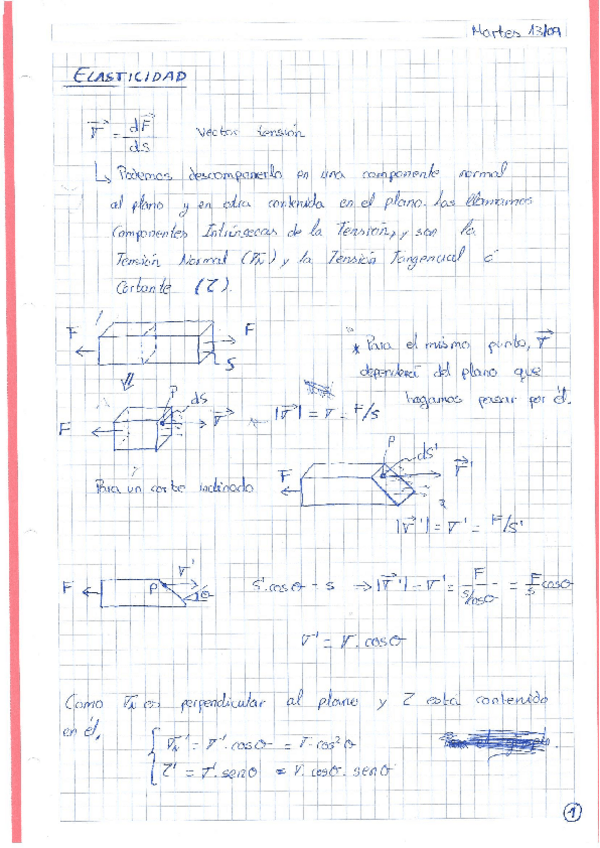 Martes 13/09
ELASTICIDAD
σ⃗ = dF⃗/ds vector tensión
↳ Podemos descomponerlo en una componente normal
al plano y en otra contenida en el plano. Las llamamos
Componentes Intrínsecas de la Tensión, y son la
Tensión Normal (σ⃗N) y la Tensión Tangencial ó
Cortante (τ).
F F
S
* Para el mismo punto, σ⃗
dependerá del plano que
hagamos pasar por él.
P dS
F σ⃗ |σ⃗| = σ = F/S
P dS'
Para un corte inclinado F σ⃗'
|σ⃗'| = σ' = F/S'
F P σ⃗' θ S'.cosθ = S → |σ⃗'| = σ' = F/(S/cosθ) = F/S cosθ
σ' = σ.cosθ
Como σN es perpendicular al plano y τ está contenido
en él,
σN' = σ'.cosθ = σ.cos²θ
τ' = σ'.senθ = σ.cosθ.senθ
1